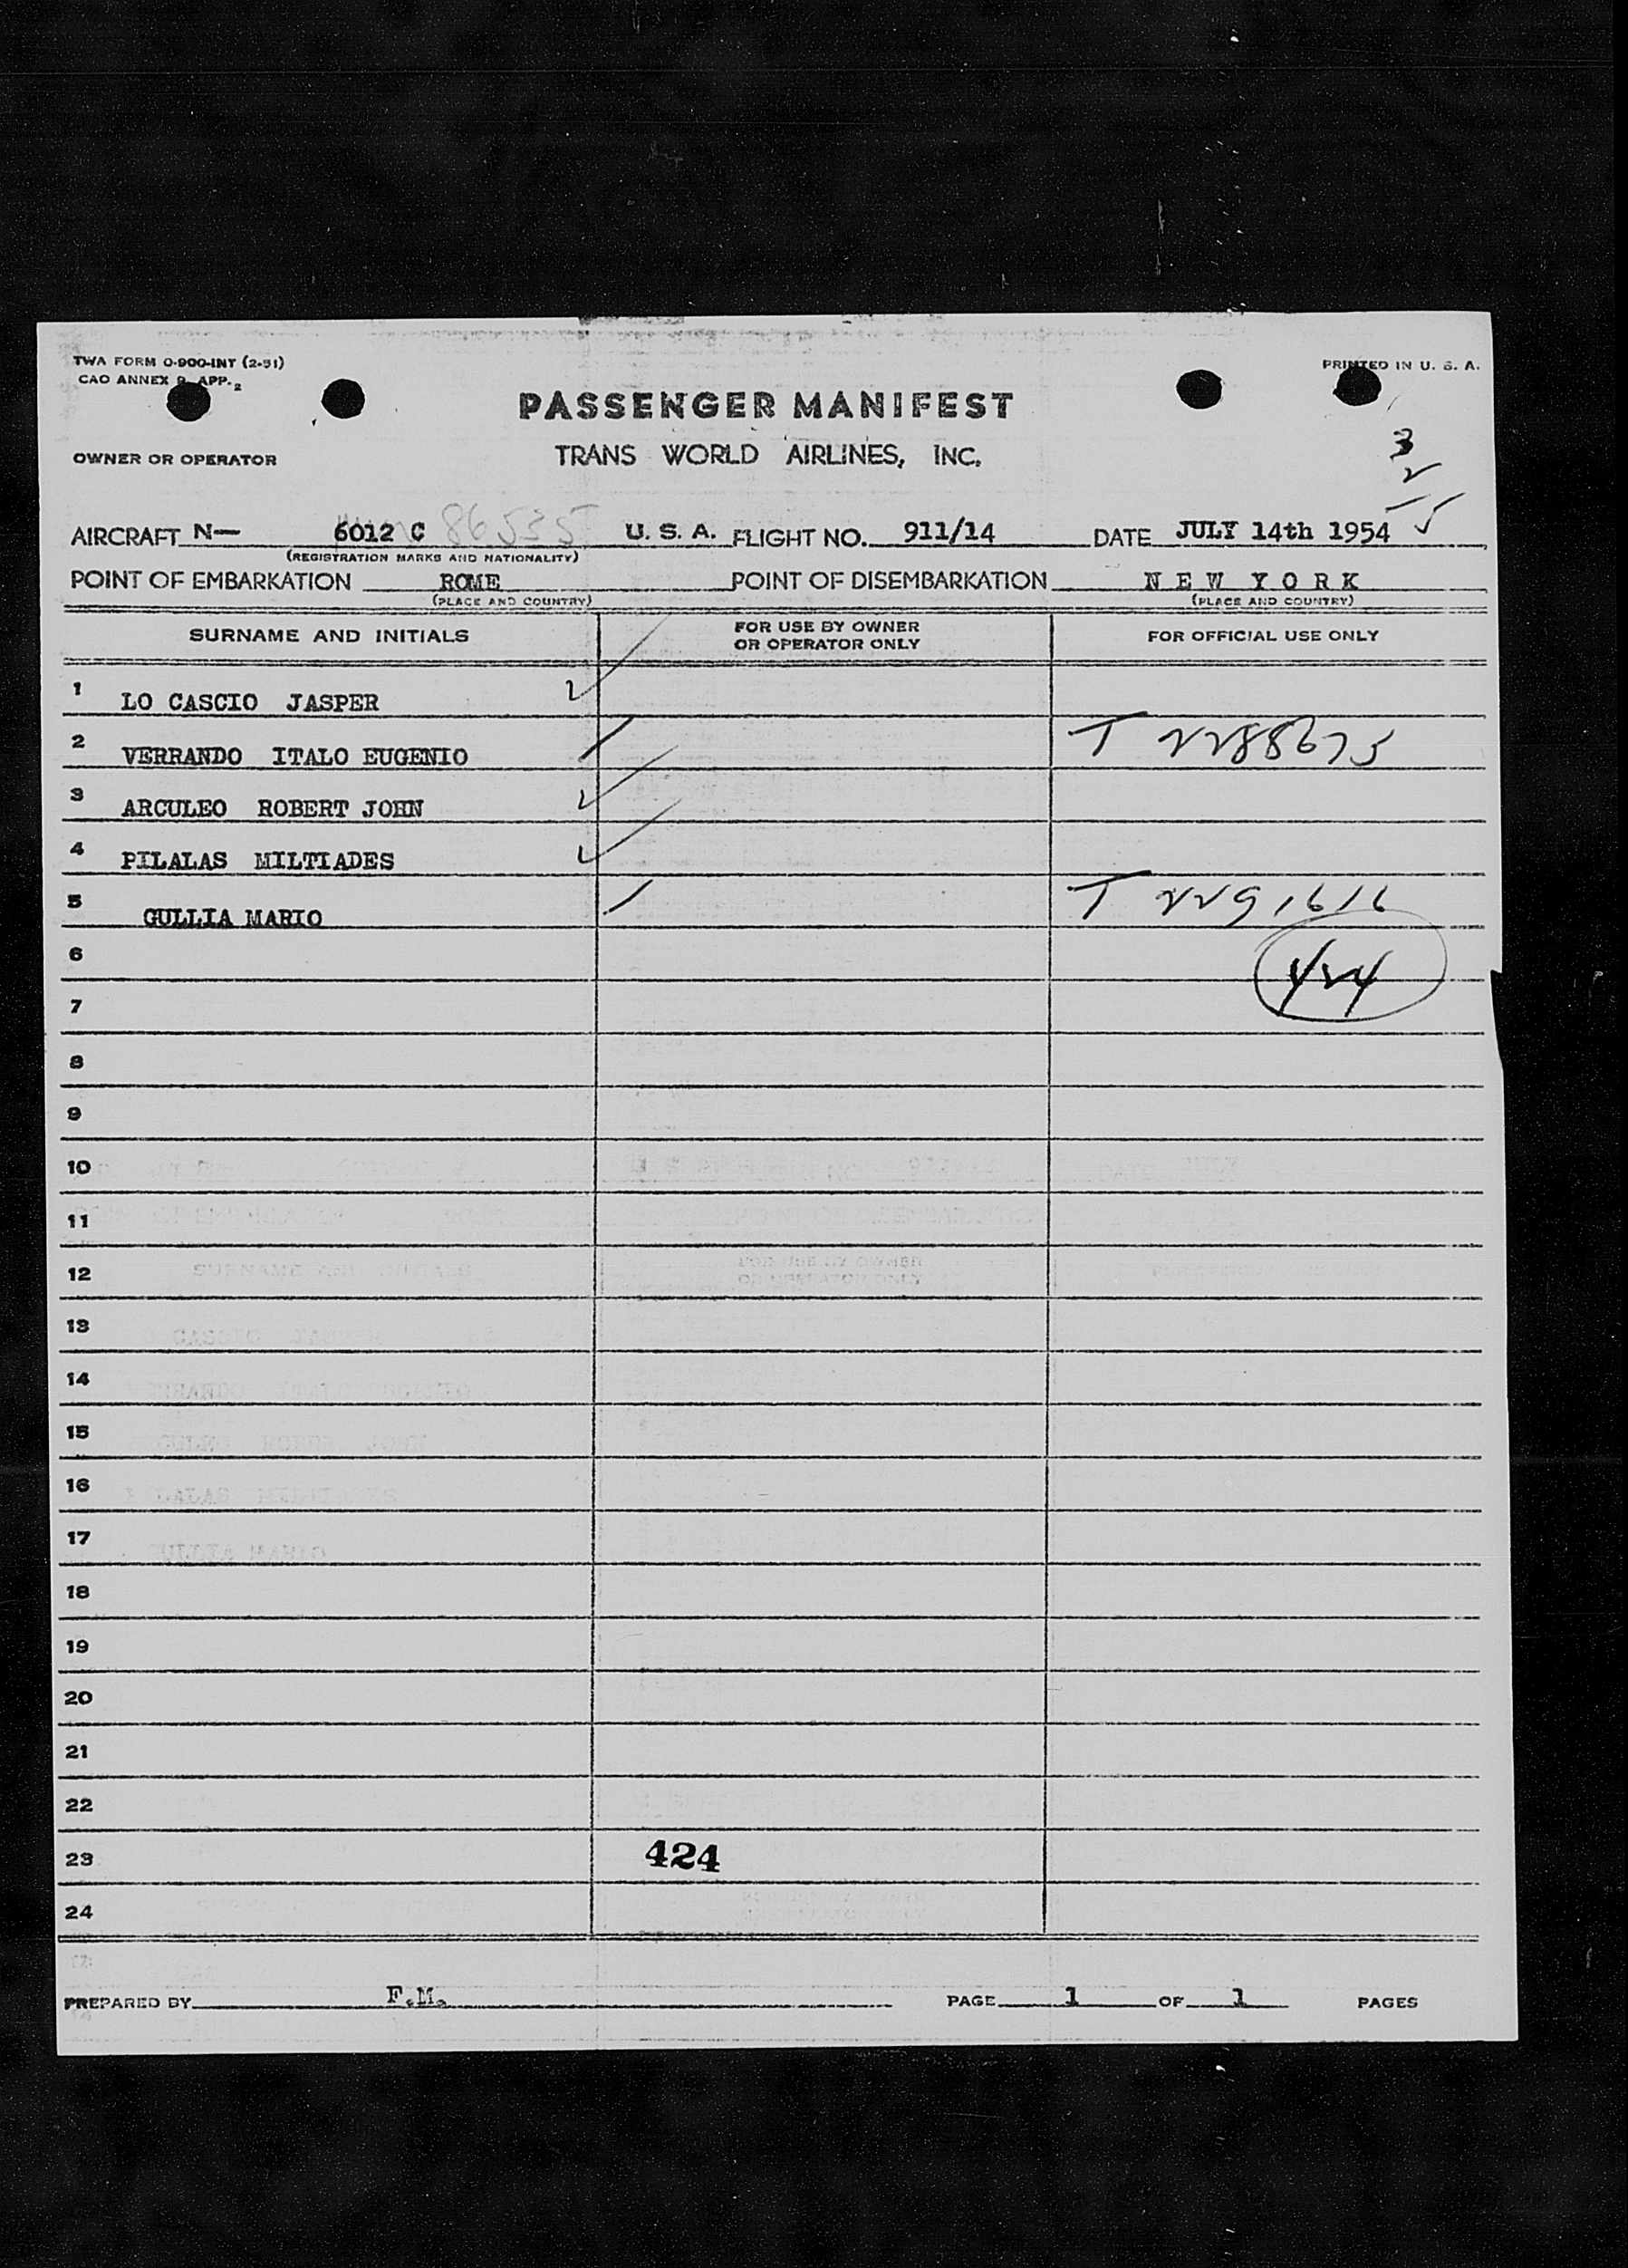 TWA FORM O-900-INT (2-51)
PRINTED IN U. S. A.
CAO ANNEX 9 APP. 2
PASSENGER MANIFEST
OWNER OR OPERATOR TRANS WORLD AIRLINES, INC.
3
2
5
AIRCRAFT N— 6012 C 86535 U. S. A. FLIGHT NO. 911/14 DATE JULY 14th 1954
(REGISTRATION MARKS AND NATIONALITY)
POINT OF EMBARKATION ROME POINT OF DISEMBARKATION N E W Y O R K
(PLACE AND COUNTRY) (PLACE AND COUNTRY)
SURNAME AND INITIALS FOR USE BY OWNER OR OPERATOR ONLY FOR OFFICIAL USE ONLY
1 LO CASCIO JASPER
2 VERRANDO ITALO EUGENIO T 2288675
3 ARCULEO ROBERT JOHN
4 PILALAS MILTIADES
5 GULLIA MARIO T 2291616
6 424
7
8
9
10
11
12
13
14
15
16
17
18
19
20
21
22
23 424
24
PREPARED BY F.M. PAGE 1 OF 1 PAGES